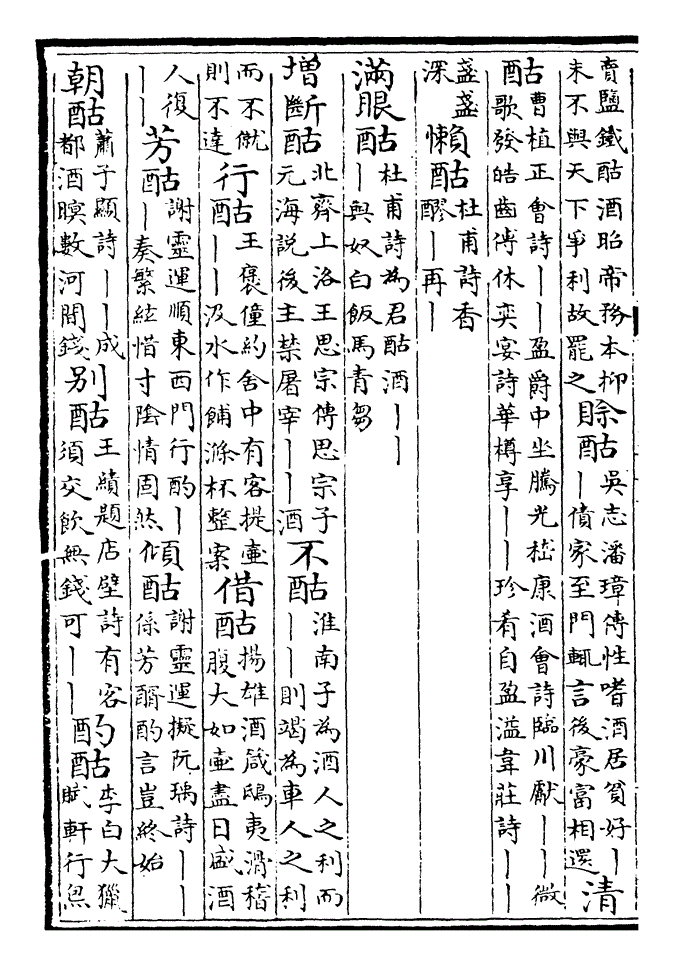 賣鹽鐵酤酒昭帝務本抑
末不與天下爭利故罷之
賒酤
吳志潘璋傳性嗜酒居貧好｜
｜債家至門輒言後豪富相還
清
酤
曹植正會詩｜｜盈爵中坐騰光嵇康酒會詩臨川獻｜｜微
歌發皓齒傅休奕宴詩華樽享｜｜珍肴自盈溢韋莊詩｜｜
盞盞
深
懶酤
杜甫詩香
醪｜再｜
滿眼酤
杜甫詩為君酤酒｜｜
｜與奴白飯馬青芻
增斷酤
北齊上洛王思宗傳思宗子
元海說後主禁屠宰｜｜酒
不酤
淮南子為酒人之利而
｜｜則竭為車人之利
而不僦
則不達
行酤
王褒僮約舍中有客提壺
｜｜汲水作餔滌杯整案
借酤
揚雄酒箴鴟夷滑稽
腹大如壺盡日盛酒
人復
｜｜
芳酤
謝靈運順東西門行酌｜
｜奏繁絃惜寸陰情固然
傾酤
謝靈運擬阮瑀詩｜｜
係芳醑酌言豈終始
朝酤
蕭子顯詩｜｜成
都酒暝數河間錢
別酤
王績題店壁詩有客
須交飲無錢可｜｜
酌酤
李白大獵
賦軒行炰